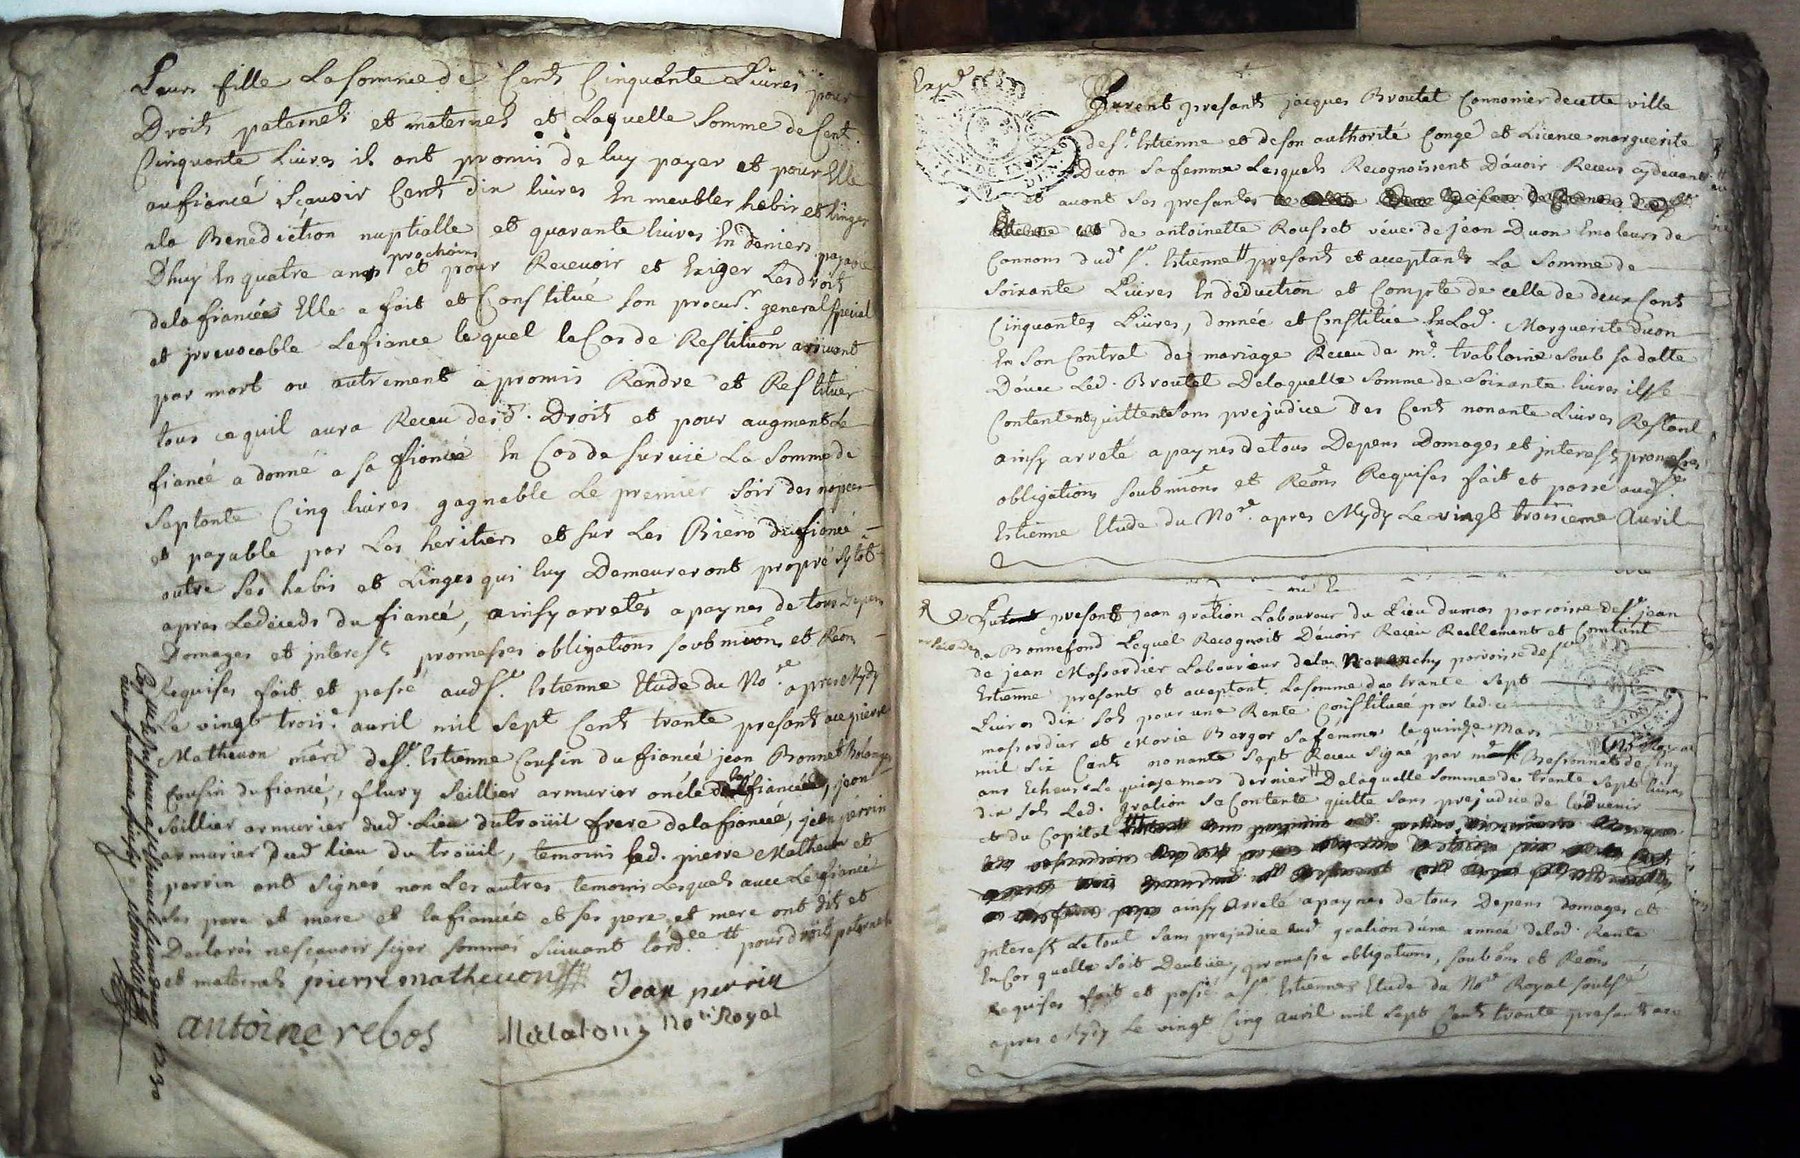 Leurs fille La somme de Cent Cinquante Livres pour
Droits paternels et maternels et Laquelle Somme de Cent
Cinquante Livres ils ont promis de luy payer et pour Elle
au fiancé Sçavoir Cent dix livres En meubles habis et Linges
ala Benediction nuptialle et quarante livres En deniers payable
D'huy En quatre ans prochains et pour Recevoir et Exiger Les droits
dela fiancée Elle a fait et Constitué son procur. general special
et jrrevocable Le fiancé lequel le Cas de Restitution arrivant
par mort ou autrement a promis Randre et Restituer
tous ce quil aura Receu desd. Droits et pour augment Le
fiancé a donné a sa fiancée En Cas de survie La Somme de
Septante Cinq livres gagnable Le premier soir des nopces
et payable par Les heritiers et sur Les Biens du fiancé
outre ses habis et Linges qui luy Demeureront propre sytôt
apres Le deceds du fiancé, ainsy arretés a paynes de tous Depens
Domages et interests promesses obligations soubmions et Reons
Requises fait et passé aud St. Estienne Etude du Nore. apres Mydy
Le vingt trois.e avril mil sept Cents trante presants ace pierre
Matheuon march. de St. Estienne Cousin du fiancé jean Bonnet Bolanger
Cousin du fiancé, flury Seillier armurier oncle de la fiancée, jean
Seillier armurier dud. Lieu du troüil frere dela fiancée, jean perrin
armurier Dud lieu du troüil, temoins Led. pierre Matheuon et
perrin ont Signés non Les autres temoins Lesquels avec Le fiancé
Ses pere et mere et la fiancée et ses pere et mere ont dit et
Declarés ne sçavoir siger sommés suivant lord.ce # pour droits paternels
et maternels pierre matheuon Jean perrin
antoine rebos Not. Royal
Exp.d
Furent presants jacques Broutel Connonier de cette ville
de St. Estienne et de son authorité Congé et Licence marguerite
Duon sa femme Lesquels Recognoissent Davoir Receus cydevant
et avant ses presantes
de antoinette Rousset veuve de jean Duon Emoleurs de
Connons dud St. Estienne # presants et acceptants La Somme de
Soixante Livres En deduction et Compte de celle de deux Cents
Cinquantes Livres, donnée et Constituée a Lad. Marguerite Duon
En son Contrat de mariage Receu de me. trablaine soub sa datte
D'avec Led. Broutel De laquelle Somme de Soixante livres ils se
Contentent quittent sans prejudice Des Cents nonante Livres Restant
ainsy arreté a paynes de tous Depens Domages et interests promesses
obligations soubmions et Reons Requises fait et passé aud St.
Estienne Etude du Nore. apres Mydy Le vingt troisieme Avril
Fut presant jean gration Laboureur du Lieu dumas parroisse de St. jean
de Bonnefond Lequel Recognoit Davoir Receu Reellement et Comtant
de jean Massardier Laboureur dela parroisse de St.
Estienne presant et acceptant La somme de trante sept
Livres dix sols pour une Rente Constituée par led
massardier et Marie Berger sa femme le quinze Mars
mil Six Cents nonante Sept Receu signé par me. Bessonnet
ans Echeus Le quinze mars dernier # Delaquelle Somme de trante sept livres
dix sols Led. gration se Contente quitte sans prejudice de
et du Capital
ainsy arreté a paynes de tous Depens domages et
interests Le tout sans prejudice aud gration d'une année delad. Rente
Encor quelle soit Deubüe, promesse obligations, soubons et Reons
Requises fait et passé a St. Estienne Etude du Nore. Royal soubsé
apres Mydy Le vingt Cinq avril mil sept Cents trante presants ace